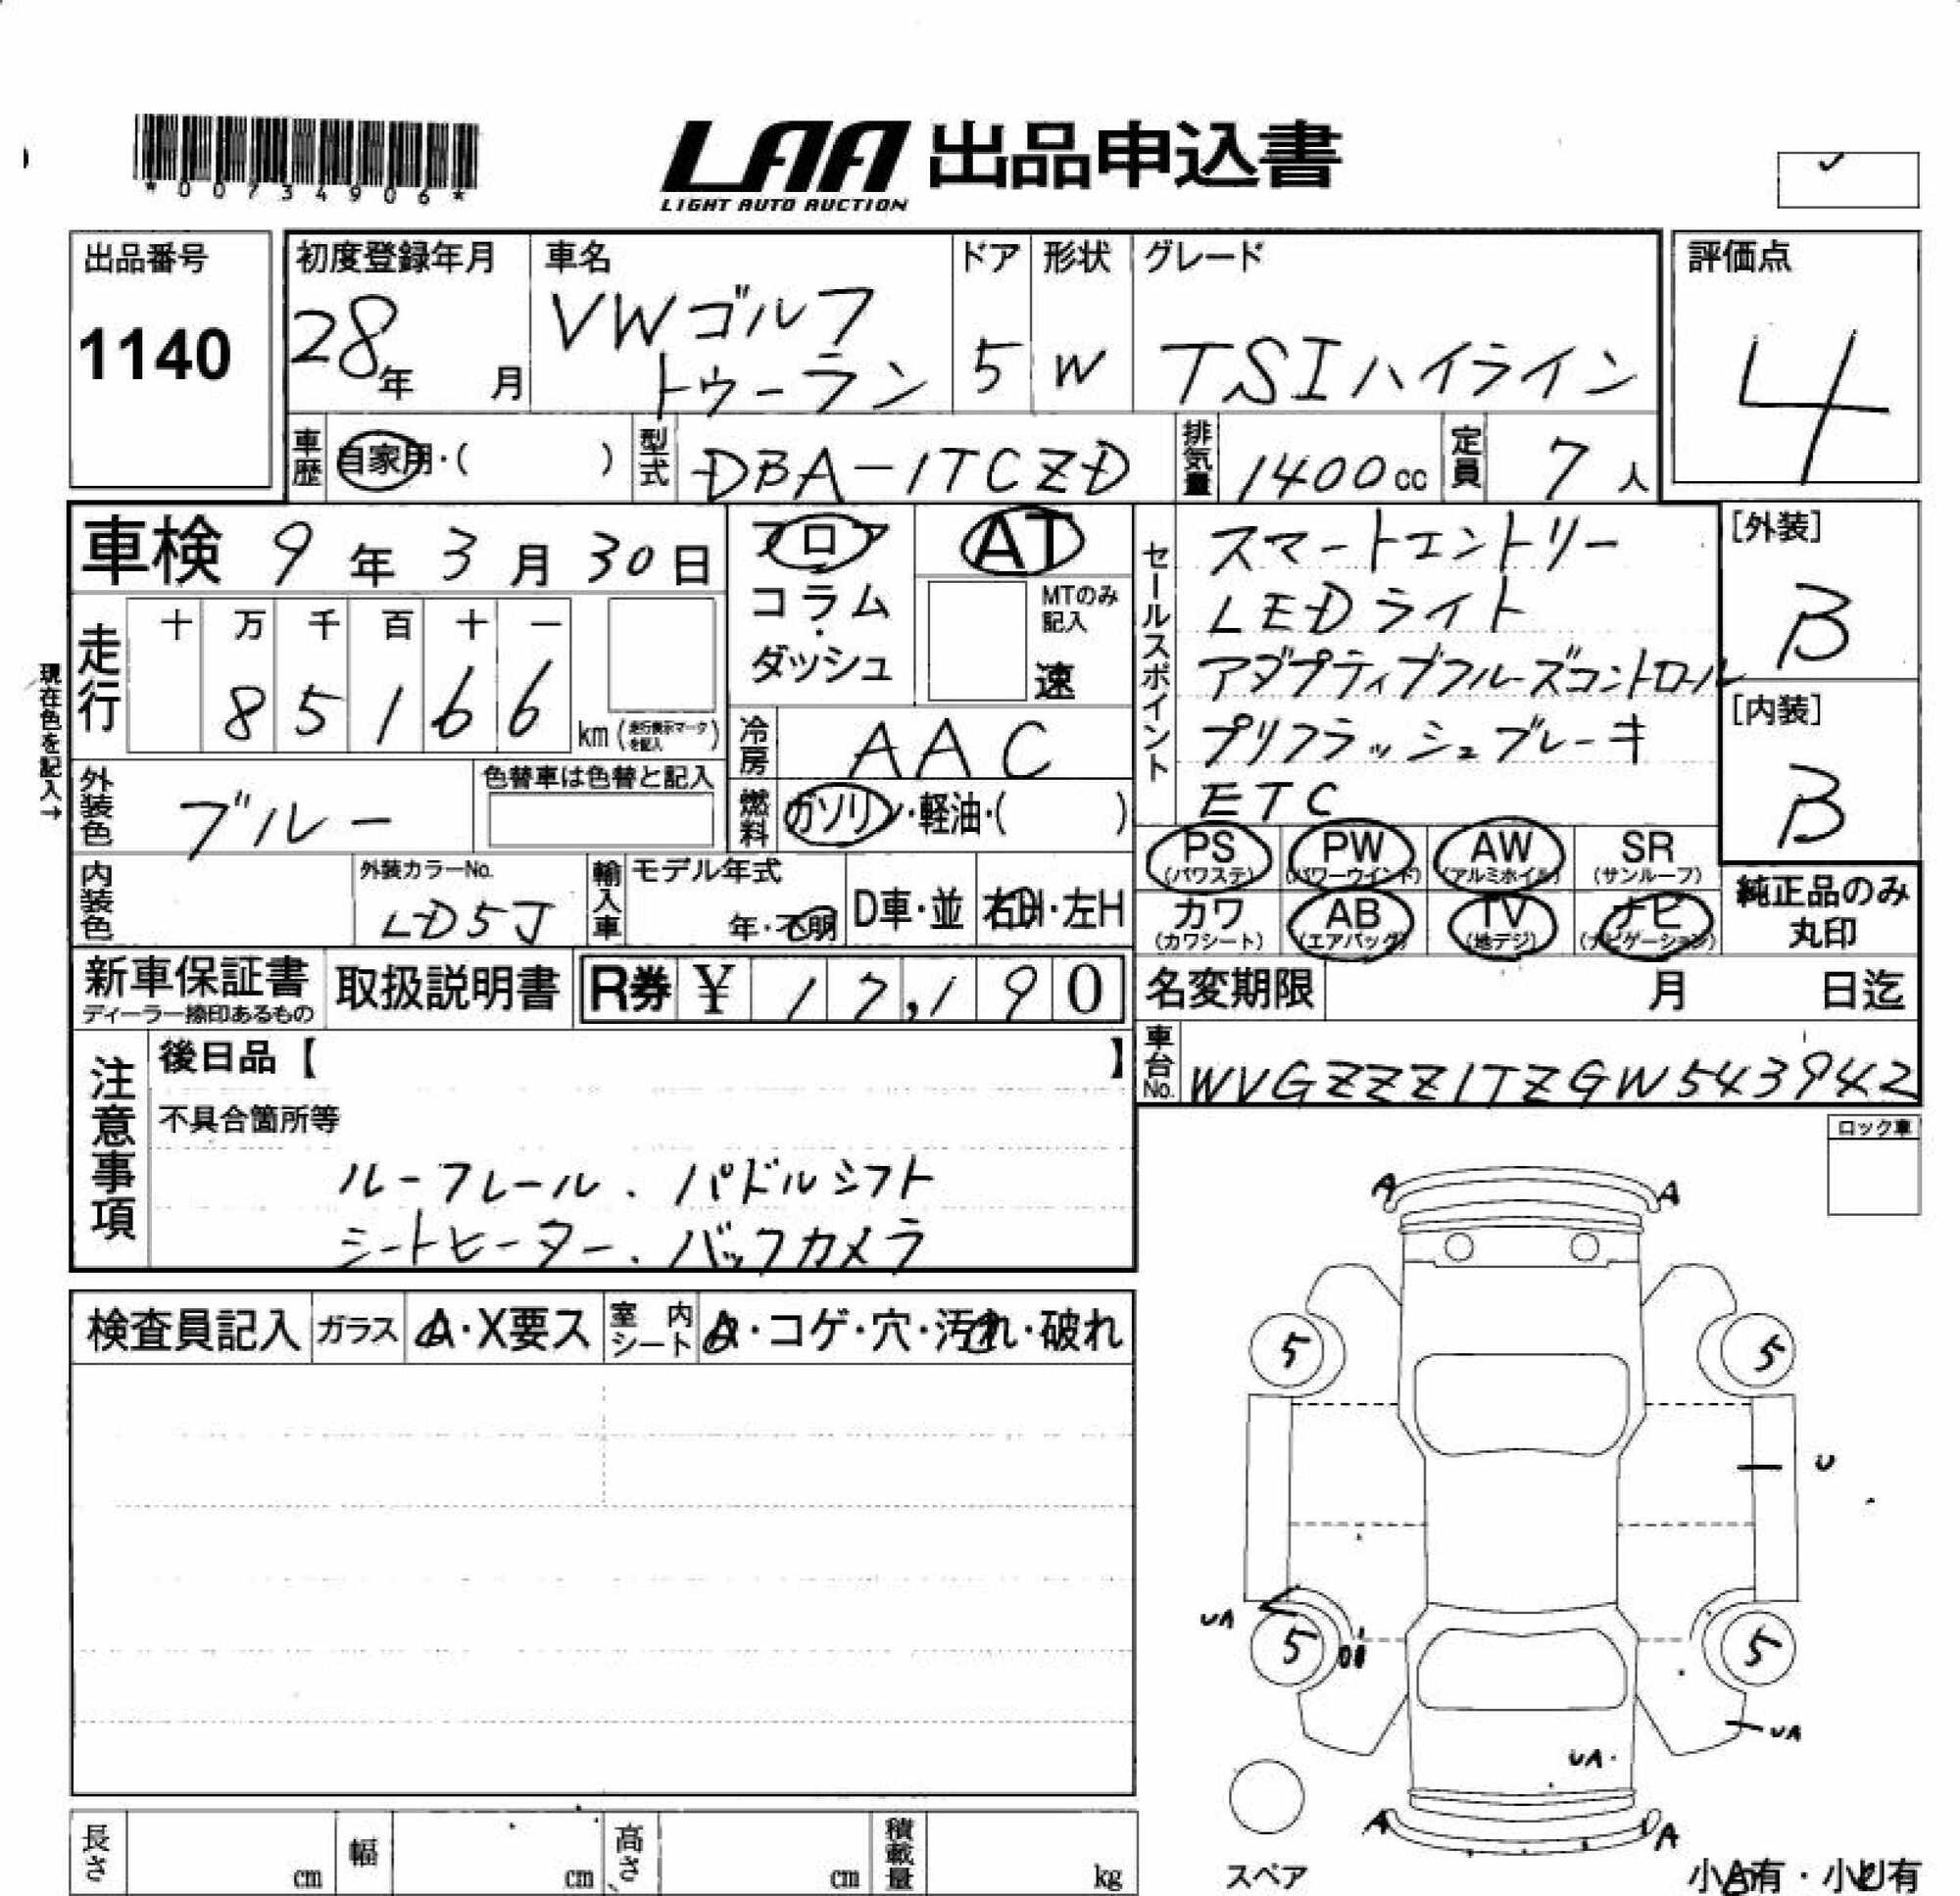 *00734906*
LAA 出品申込書
LIGHT AUTO AUCTION
出品番号
1140
初度登録年月
28年 月
車名
VWゴルフ
トゥーラン
ドア
5
形状
W
グレード
TSIハイライン
評価点
4
車歴 自家用・( )
型式 DBA-1TCZD
排気量 1400cc
定員 7人
車検 9年3月30日
フロア
コラム
・
ダッシュ
AT
MTのみ
記入
速
走行
十 万 千 百 十 一
8 5 1 6 6
km (走行表示マークを記入)
現在色を記入→
冷房 AAC
外装色 ブルー
色替車は色替と記入
燃料 ガソリン・軽油・( )
内装色
外装カラーNo.
LD5J
輸入車
モデル年式
年・不明
D車・並
右H・左H
セールスポイント
スマートエントリー
LEDライト
アダプティブクルーズコントロール
プリクラッシュブレーキ
ETC
[外装]
B
[内装]
B
PS
(パワステ)
PW
(パワーウインド)
AW
(アルミホイル)
SR
(サンルーフ)
カワ
(カワシート)
AB
(エアバッグ)
TV
(地デジ)
ナビ
(ナビゲーション)
純正品のみ
丸印
新車保証書
ディーラー捺印あるもの
取扱説明書
R券 ¥ 17,190
名変期限 月 日迄
車台No. WVGZZZ1TZGW543942
注意事項
後日品【 】
不具合箇所等
ルーフレール.パドルシフト
シートヒーター.バックカメラ
ロック車
検査員記入
ガラス A・X要ス
室内シート A・コゲ・穴・汚れ・破れ
A A
5 5
U
UA
5 5
UA
UA
A UA
スペア
小A有・小U有
長さ cm
幅 cm
高さ cm
積載量 kg